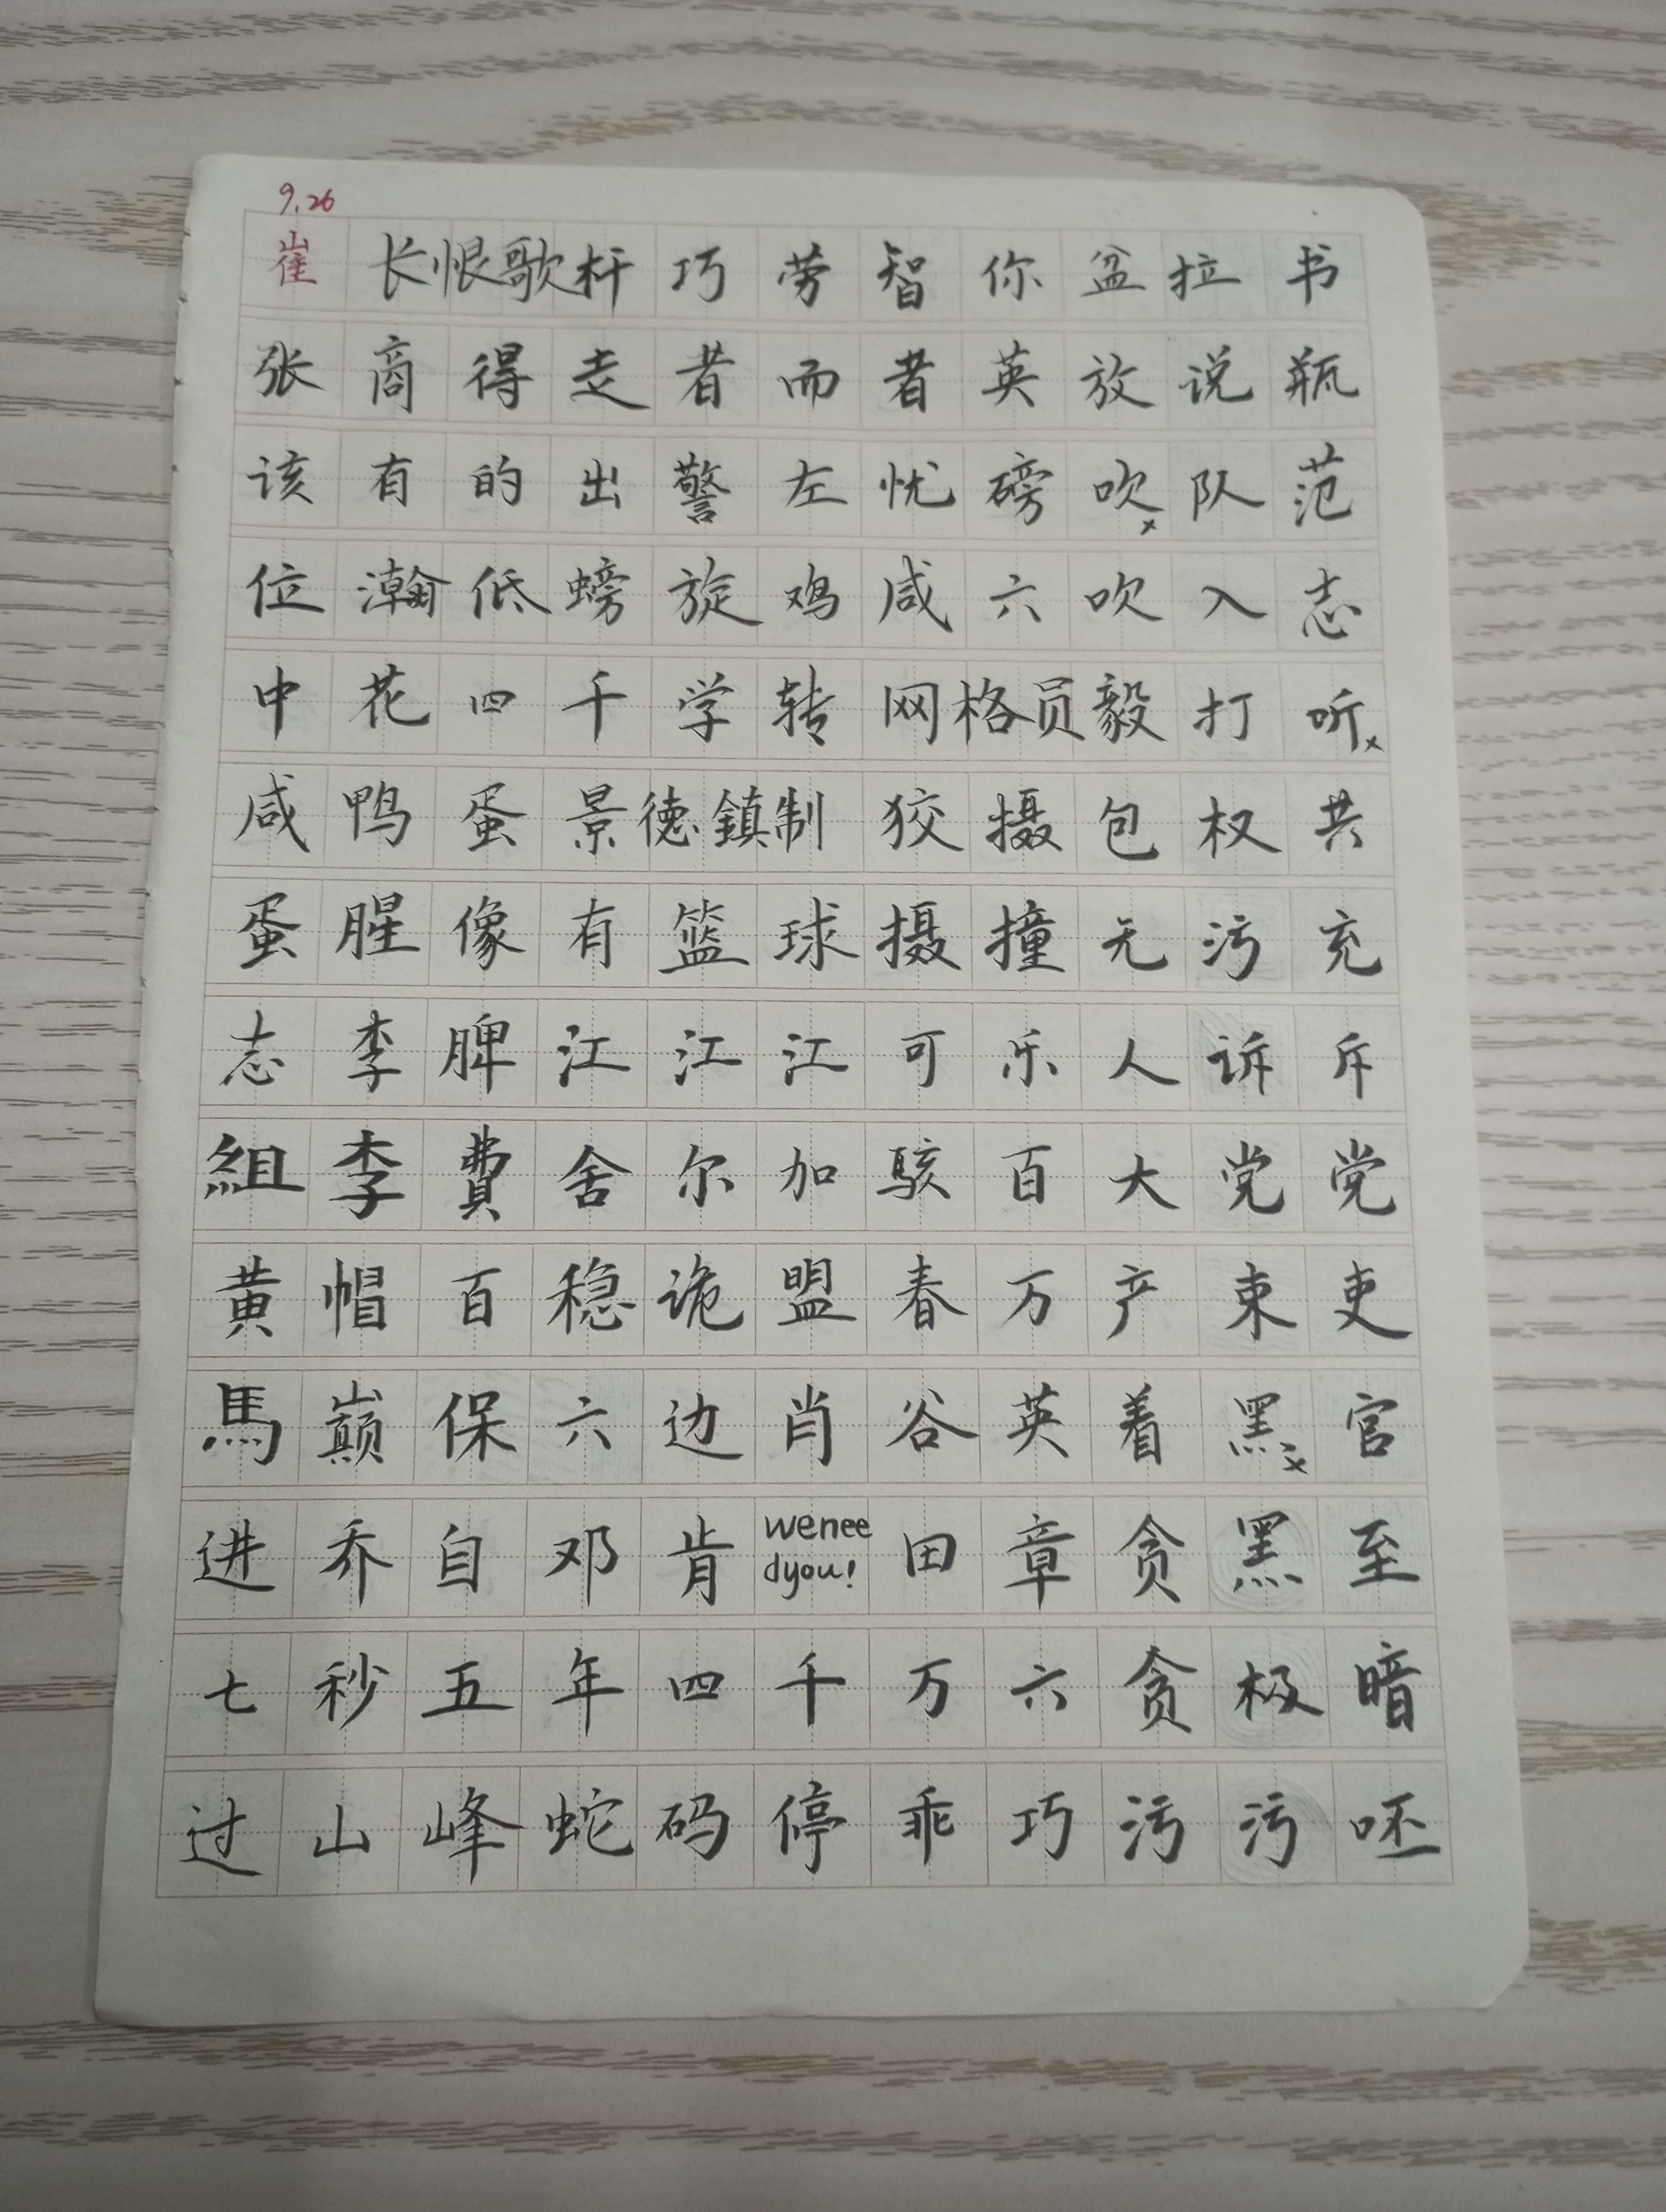 9.26
崔 长恨歌 杆 巧 劳 智 你 盆 拉 书
张 商 得 走 者 而 者 英 放 说 瓶
该 有 的 出 警 左 忧 磅 吹 队 范
位 瀚 低 螃 旋 鸡 咸 六 吹 入 志
中 花 四 千 学 转 网格员 毅 打 听
咸 鸭 蛋 景德鎮制 狡 摄 包 权 共
蛋 腥 像 有 篮 球 摄 撞 无 污 充
志 李 脾 江 江 江 可 乐 人 诉 斥
組 李 費 舍 尔 加 駭 百 大 党 党
黄 帽 百 稳 诡 盟 春 万 产 束 吏
馬 巅 保 六 边 肖 谷 英 着 黑 官
进 乔 自 邓 肯 wenee dyou! 田 章 贪 黑 至
七 秒 五 年 四 千 万 六 贪 极 暗
过 山 峰 蛇 码 停 乖 巧 污 污 呸